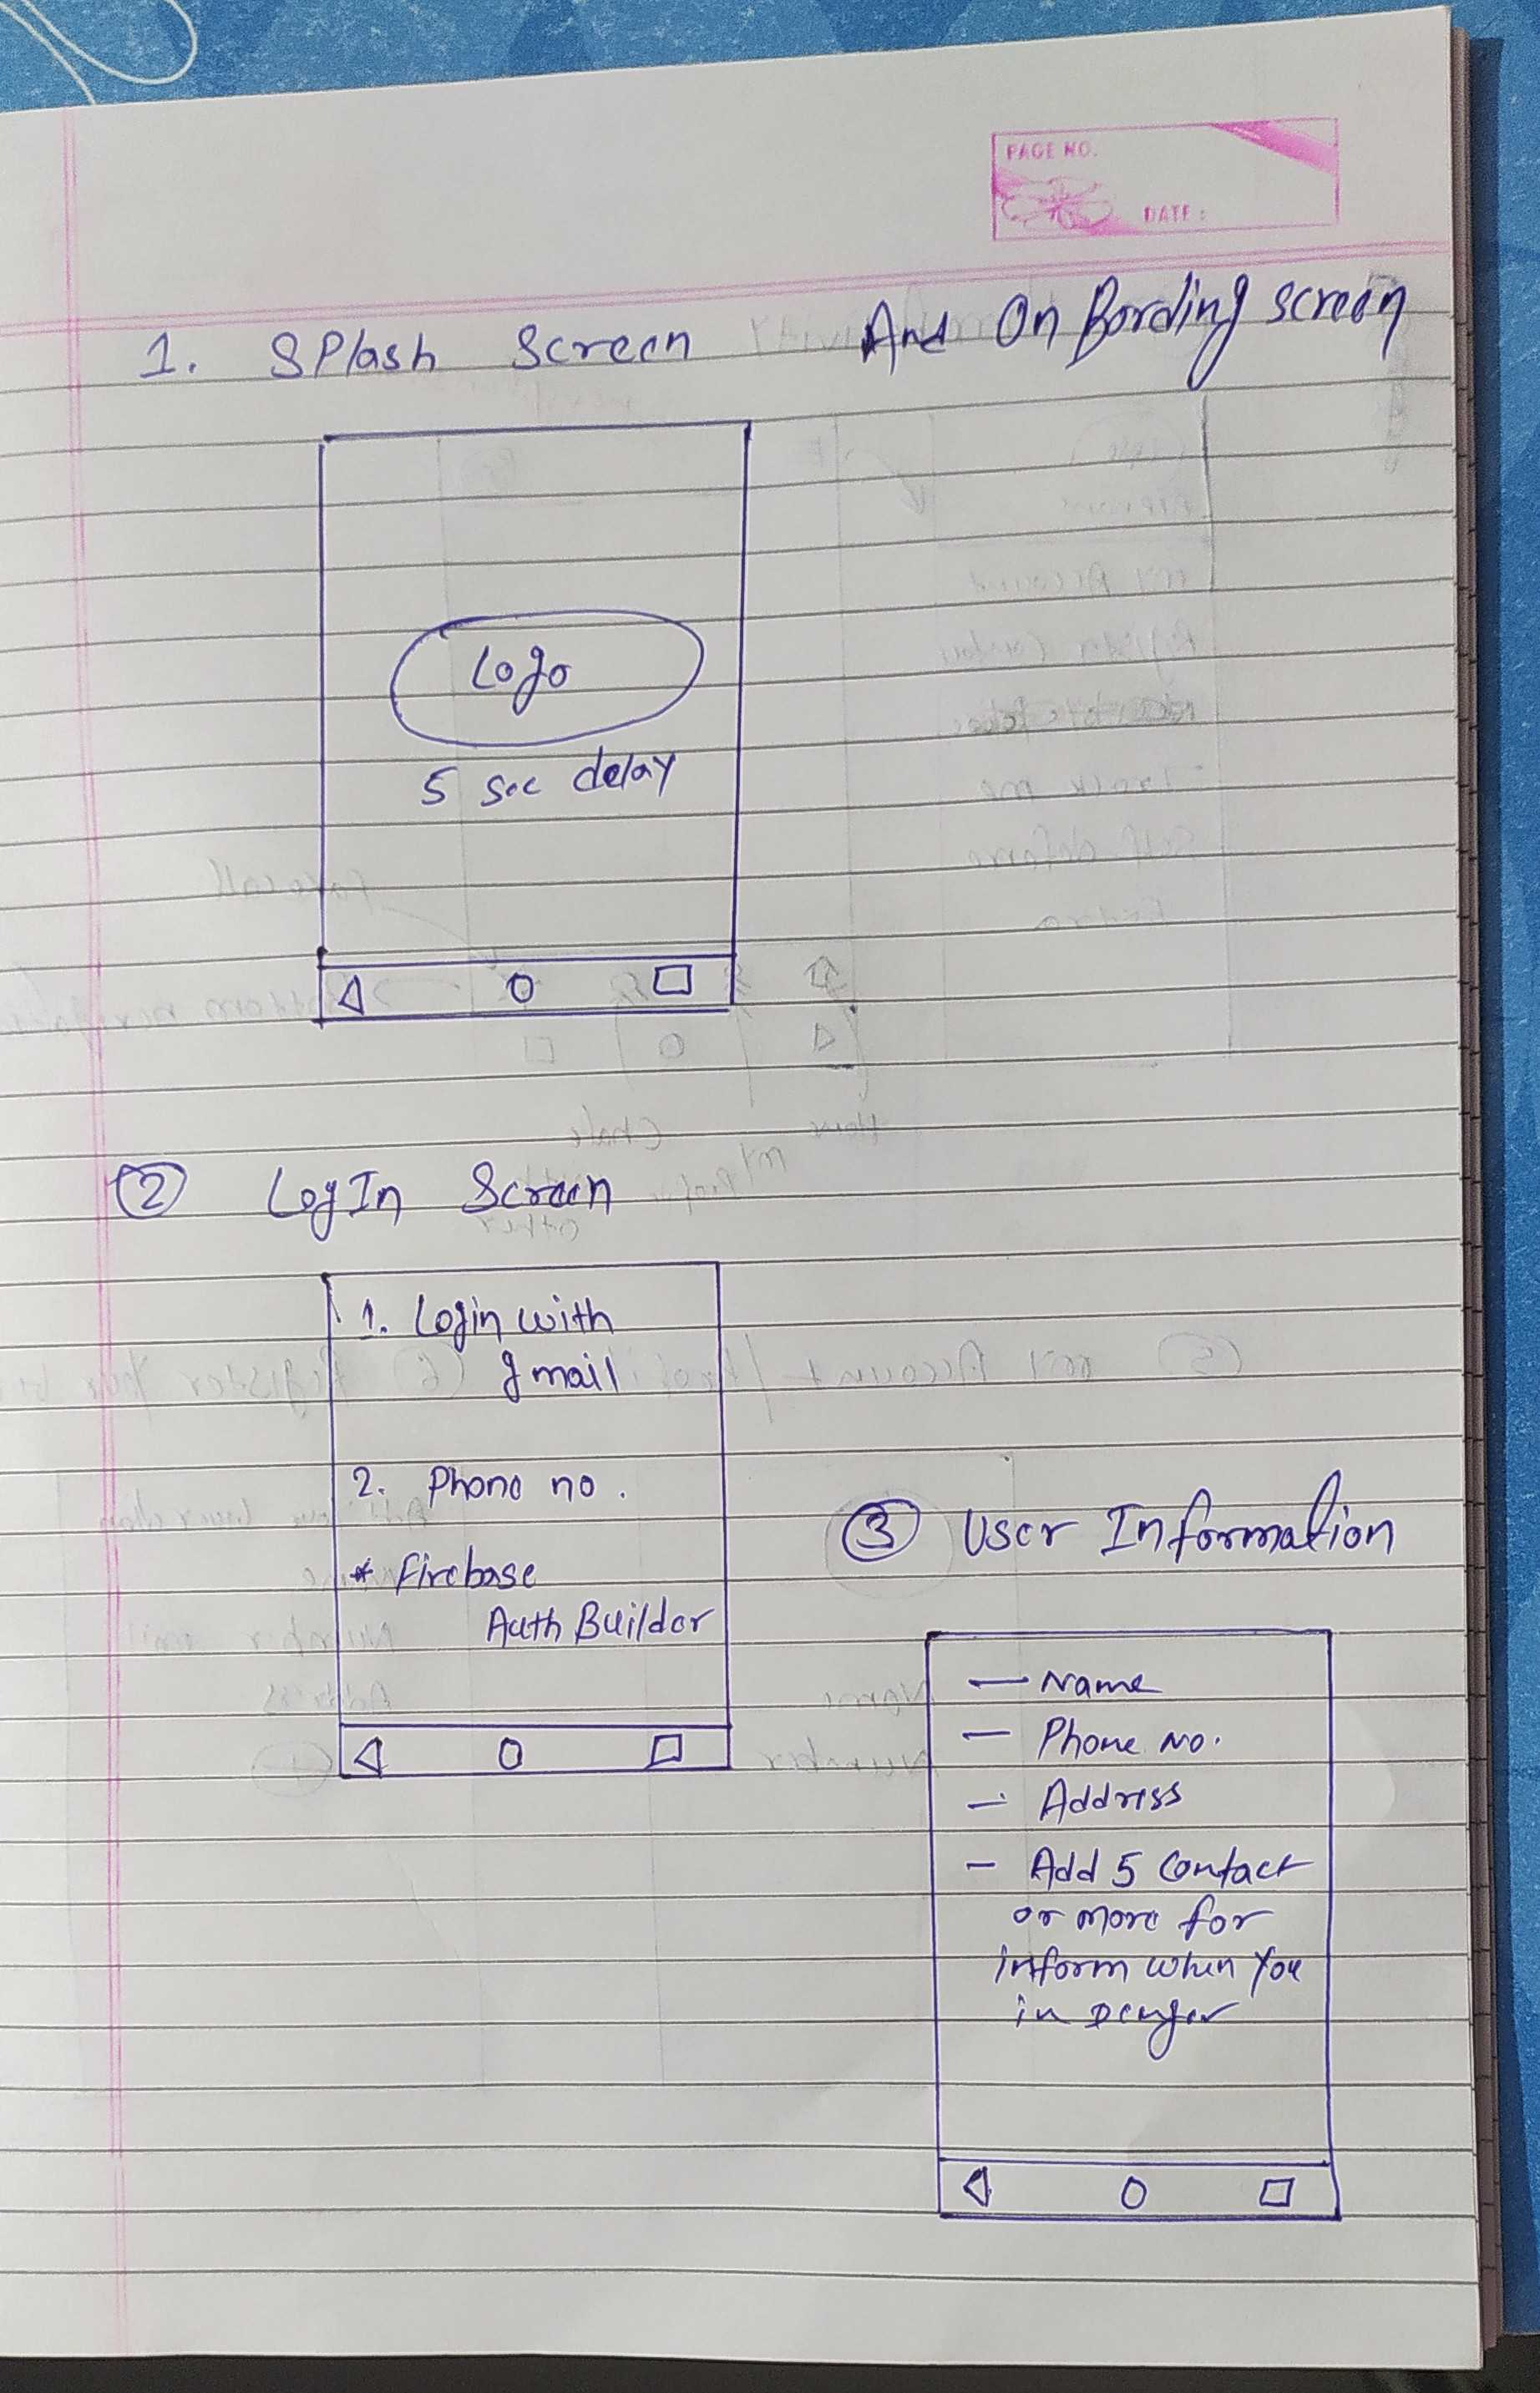 PAGE NO.
DATE :
1. SPlash Screen And On Bording screen
Logo
5 sec delay
2 LogIn Screen
1. Login with
gmail
2. Phone no.
* Firebase
Auth Builder
3 User Information
— Name
— Phone No.
— Address
— Add 5 Contact
or more for
inform when You
in Denger